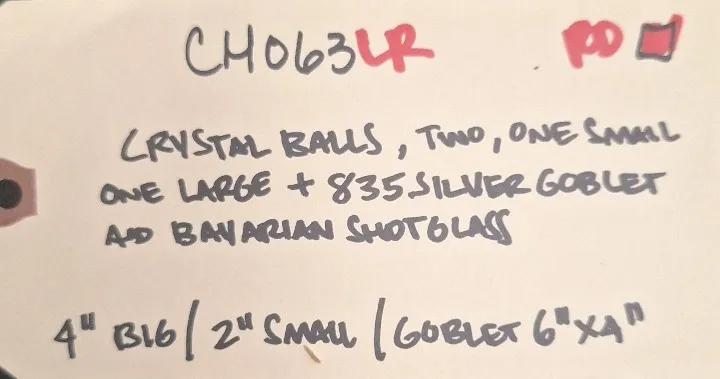 CH063LR RD
CRYSTAL BALLS, TWO, ONE SMALL
ONE LARGE + 835 SILVER GOBLET
AD BAVARIAN SHOTGLASS
4" BIG / 2" SMALL / GOBLET 6" X4"